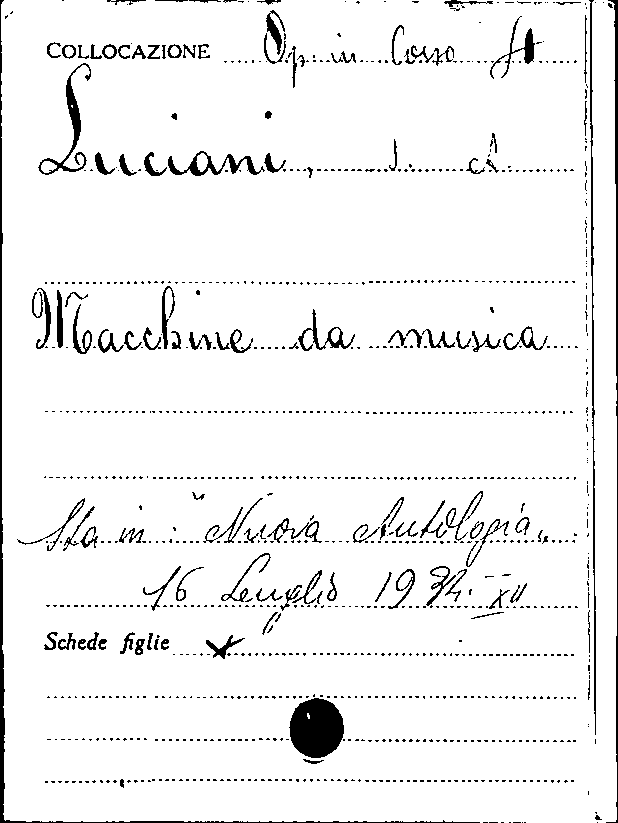 COLLOCAZIONE Op. in Corso St
Luciani, S. A.
Macchine da musica
Sta in: "Nuova Antologia„.
16 Luglio 1934. XII
Schede figlie x